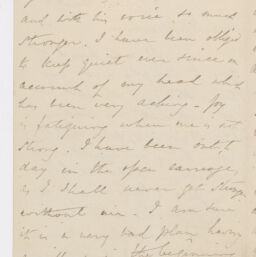 and with his voice so much
stronger. I have been obliged
to keep quiet ever since on
account of my head which
has been very aching - Joy
is fatiguing when one is not
strong. I have been out to
day in the open carriage,
as I shall never get strong
without air. I am sure
it is a very bad plan having
the beginning